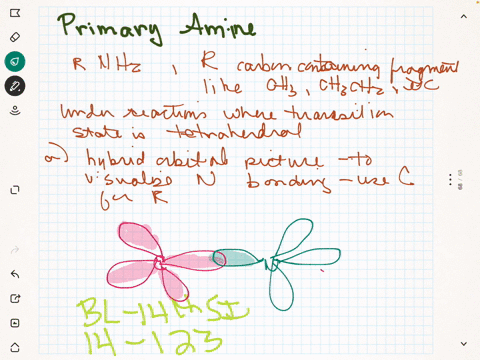 Primary Amine
R NH2 , R carbon containing fragment
like CH3, CH3CH2, etc
Under reactions where transition
state is tetrahedral
a) hybrid orbital picture - to
visualize N bonding - use C
for R
C N
BL-14
14-123